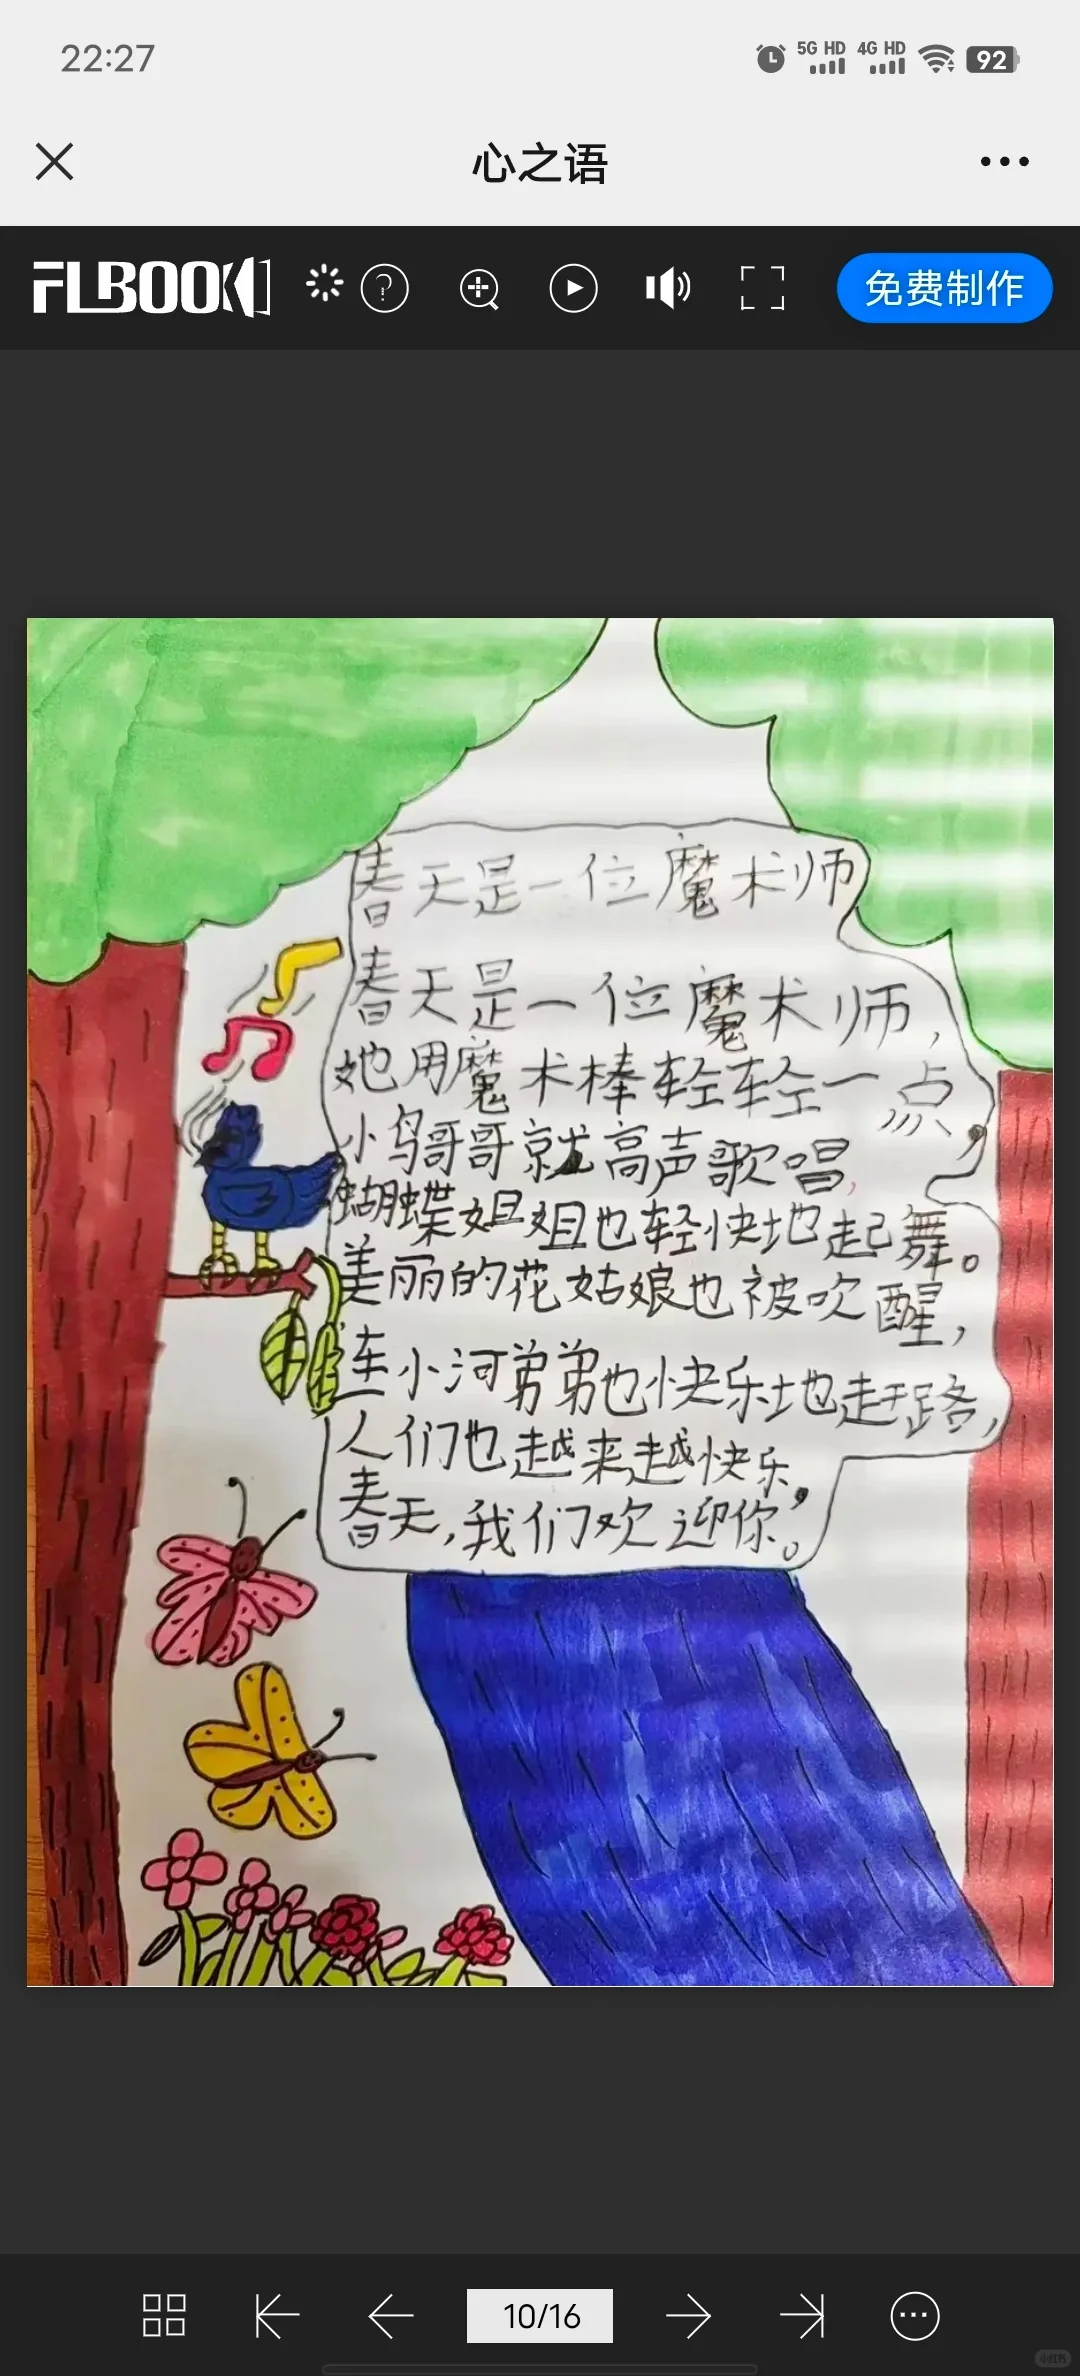 22:27
5G HD 4G HD 92
心之语
FLBOOK ? 免费制作
春天是一位魔术师
春天是一位魔术师，
她用魔术棒轻轻一点
小鸟哥哥就高声歌唱，
蝴蝶姐姐也轻快地起舞。
美丽的花姑娘也被吹醒，
连小河弟弟也快乐地赶路，
人们也越来越快乐，
春天，我们欢迎你。
10/16
小红书